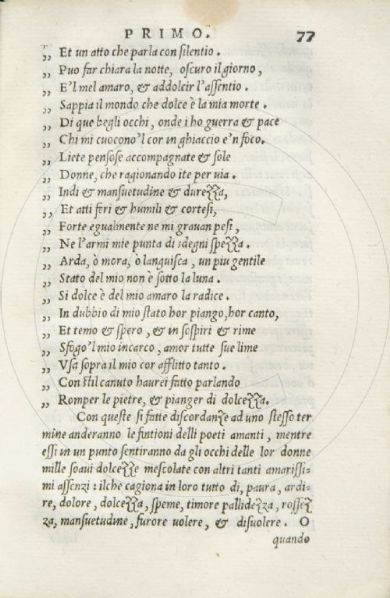 PRIMO. 77
„ Et un atto che parla con silentio.
„ Puo far chiara la notte, oscuro il giorno,
„ E'l mel amaro, & addolcir l'assentio.
„ Sappia il mondo che dolce è la mia morte.
„ Di que begli occhi, onde i ho guerra & pace
„ Chi mi cuocono'l cor in ghiaccio e'n foco.
„ Liete pensose accompagnate & sole
„ Donne, che ragionando ite per uia.
„ Indi & mansuetudine & durezza,
„ Et atti feri & humili & cortesi,
„ Forte egualmente ne mi grauan pesi,
„ Ne l'armi mie punta di sdegni spezza.
„ Arda, ò mora, ò languisca, un piu gentile
„ Stato del mio non è sotto la luna.
„ Si dolce è del mio amaro la radice.
„ In dubbio di mio stato hor piango, hor canto,
„ Et temo & spero, & in sospiri & rime
„ Sfogo'l mio incarco, amor tutte sue lime
„ Vsa sopra il mio cor afflitto tanto.
„ Con stil canuto haurei fatto parlando
„ Romper le pietre, & pianger di dolcezza.
Con queste si fatte discordanze ad uno stesso ter
mine anderanno le fintioni delli poeti amanti, mentre
essi in un punto sentiranno da gli occhi delle lor donne
mille soaui dolcezze mescolate con altri tanti amarissi-
mi assenzi: ilche cagiona in loro tutto di, paura, ardi-
re, dolore, dolcezza, speme, timore pallidezza, rossez
za, mansuetudine, furore uolere, & disuolere. O
quando